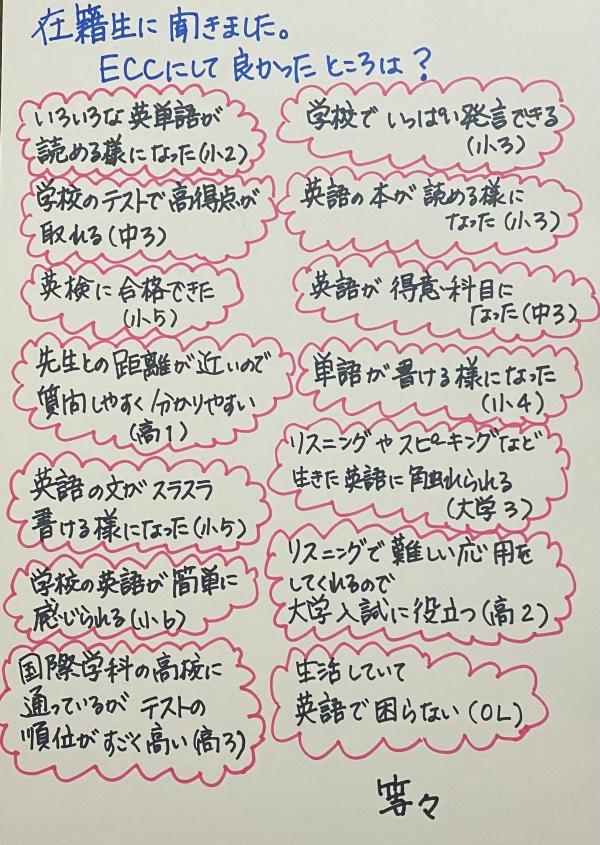 在籍生に聞きました。
ECCにして良かったところは?
いろいろな英単語が
読める様になった(小2)
学校のテストで高得点が
取れる(中3)
英検に合格できた
(小5)
先生との距離が近いので
質問しやすく分かりやすい
(高1)
英語の文がスラスラ
書ける様になった(小5)
学校の英語が簡単に
感じられる(小6)
国際学科の高校に
通っているがテストの
順位がすごく高い(高3)
学校でいっぱい発言できる
(小3)
英語の本が読める様に
なった(小3)
英語が得意科目に
なった(中3)
単語が書ける様になった
(小4)
リスニングやスピーキングなど
生きた英語に触れられる
(大学3)
リスニングで難しい応用を
してくれるので
大学入試に役立つ(高2)
生活していて
英語で困らない(OL)
等々